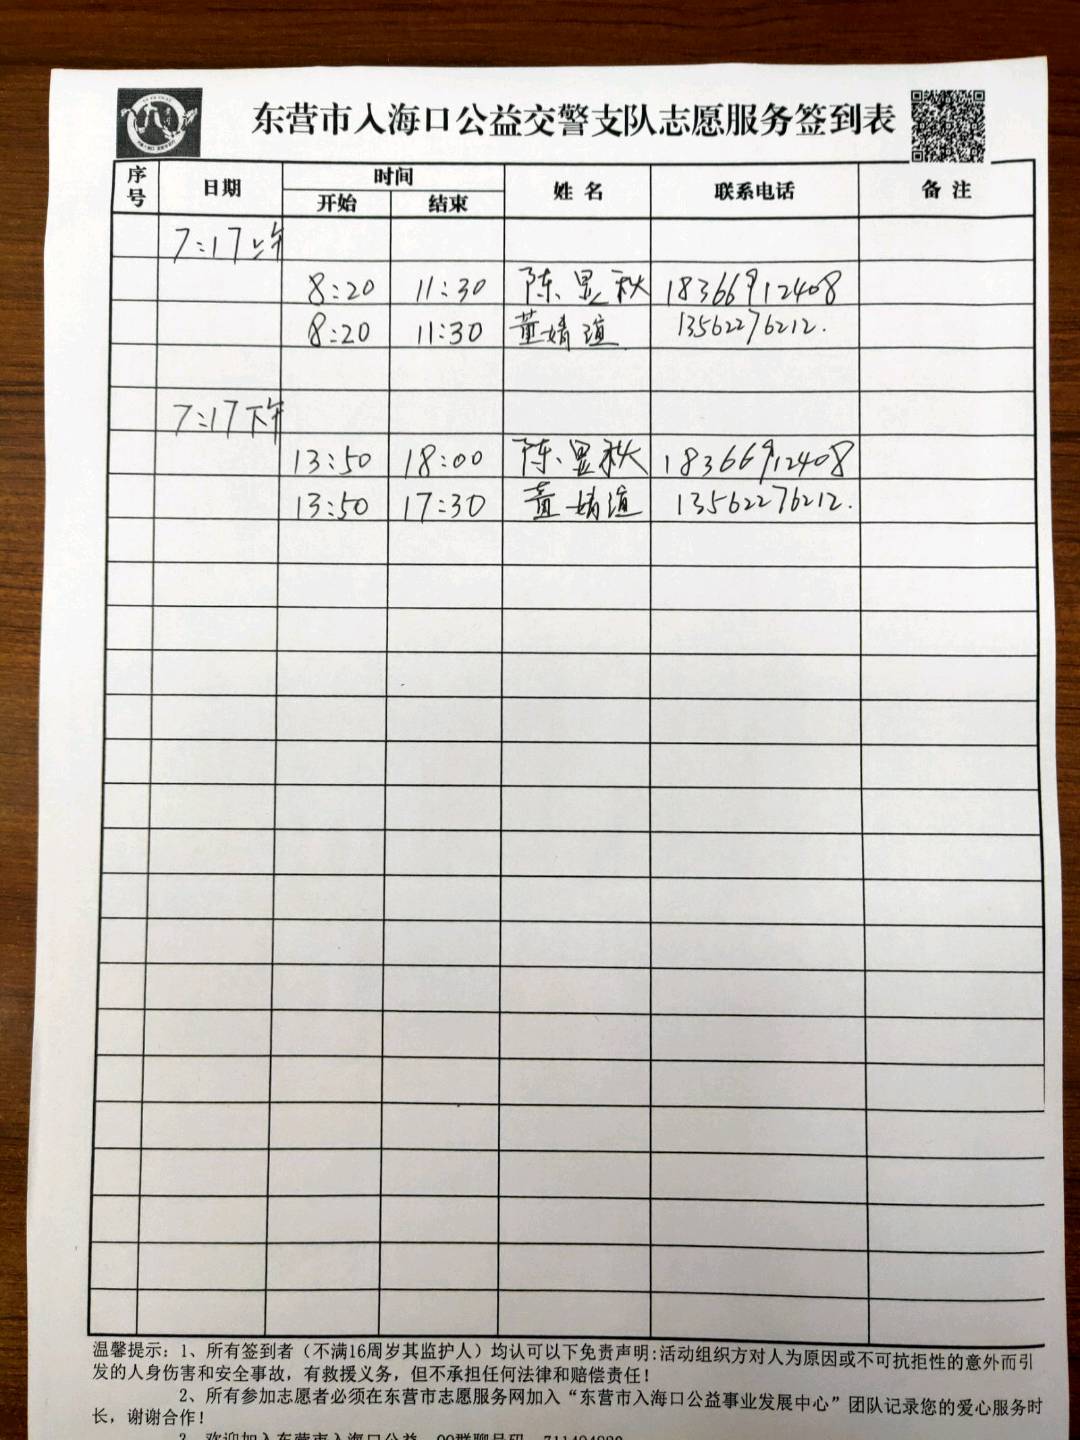 东营市入海口公益交警支队志愿服务签到表
序号 日期 时间 姓名 联系电话 备注
开始 结束
7:17上午
8:20 11:30 陈昱秋 18366912408
8:20 11:30 董婧瑄 13562276212.
7:17下午
13:50 18:00 陈昱秋 18366912408
13:50 17:30 董婧瑄 13562276212.
温馨提示:1、所有签到者(不满16周岁其监护人)均认可以下免责声明:活动组织方对人为原因或不可抗拒性的意外而引
发的人身伤害和安全事故,有救援义务,但不承担任何法律和赔偿责任!
2、所有参加志愿者必须在东营市志愿服务网加入“东营市入海口公益事业发展中心”团队记录您的爱心服务时
长,谢谢合作!
3、欢迎加入东营市入海口公益